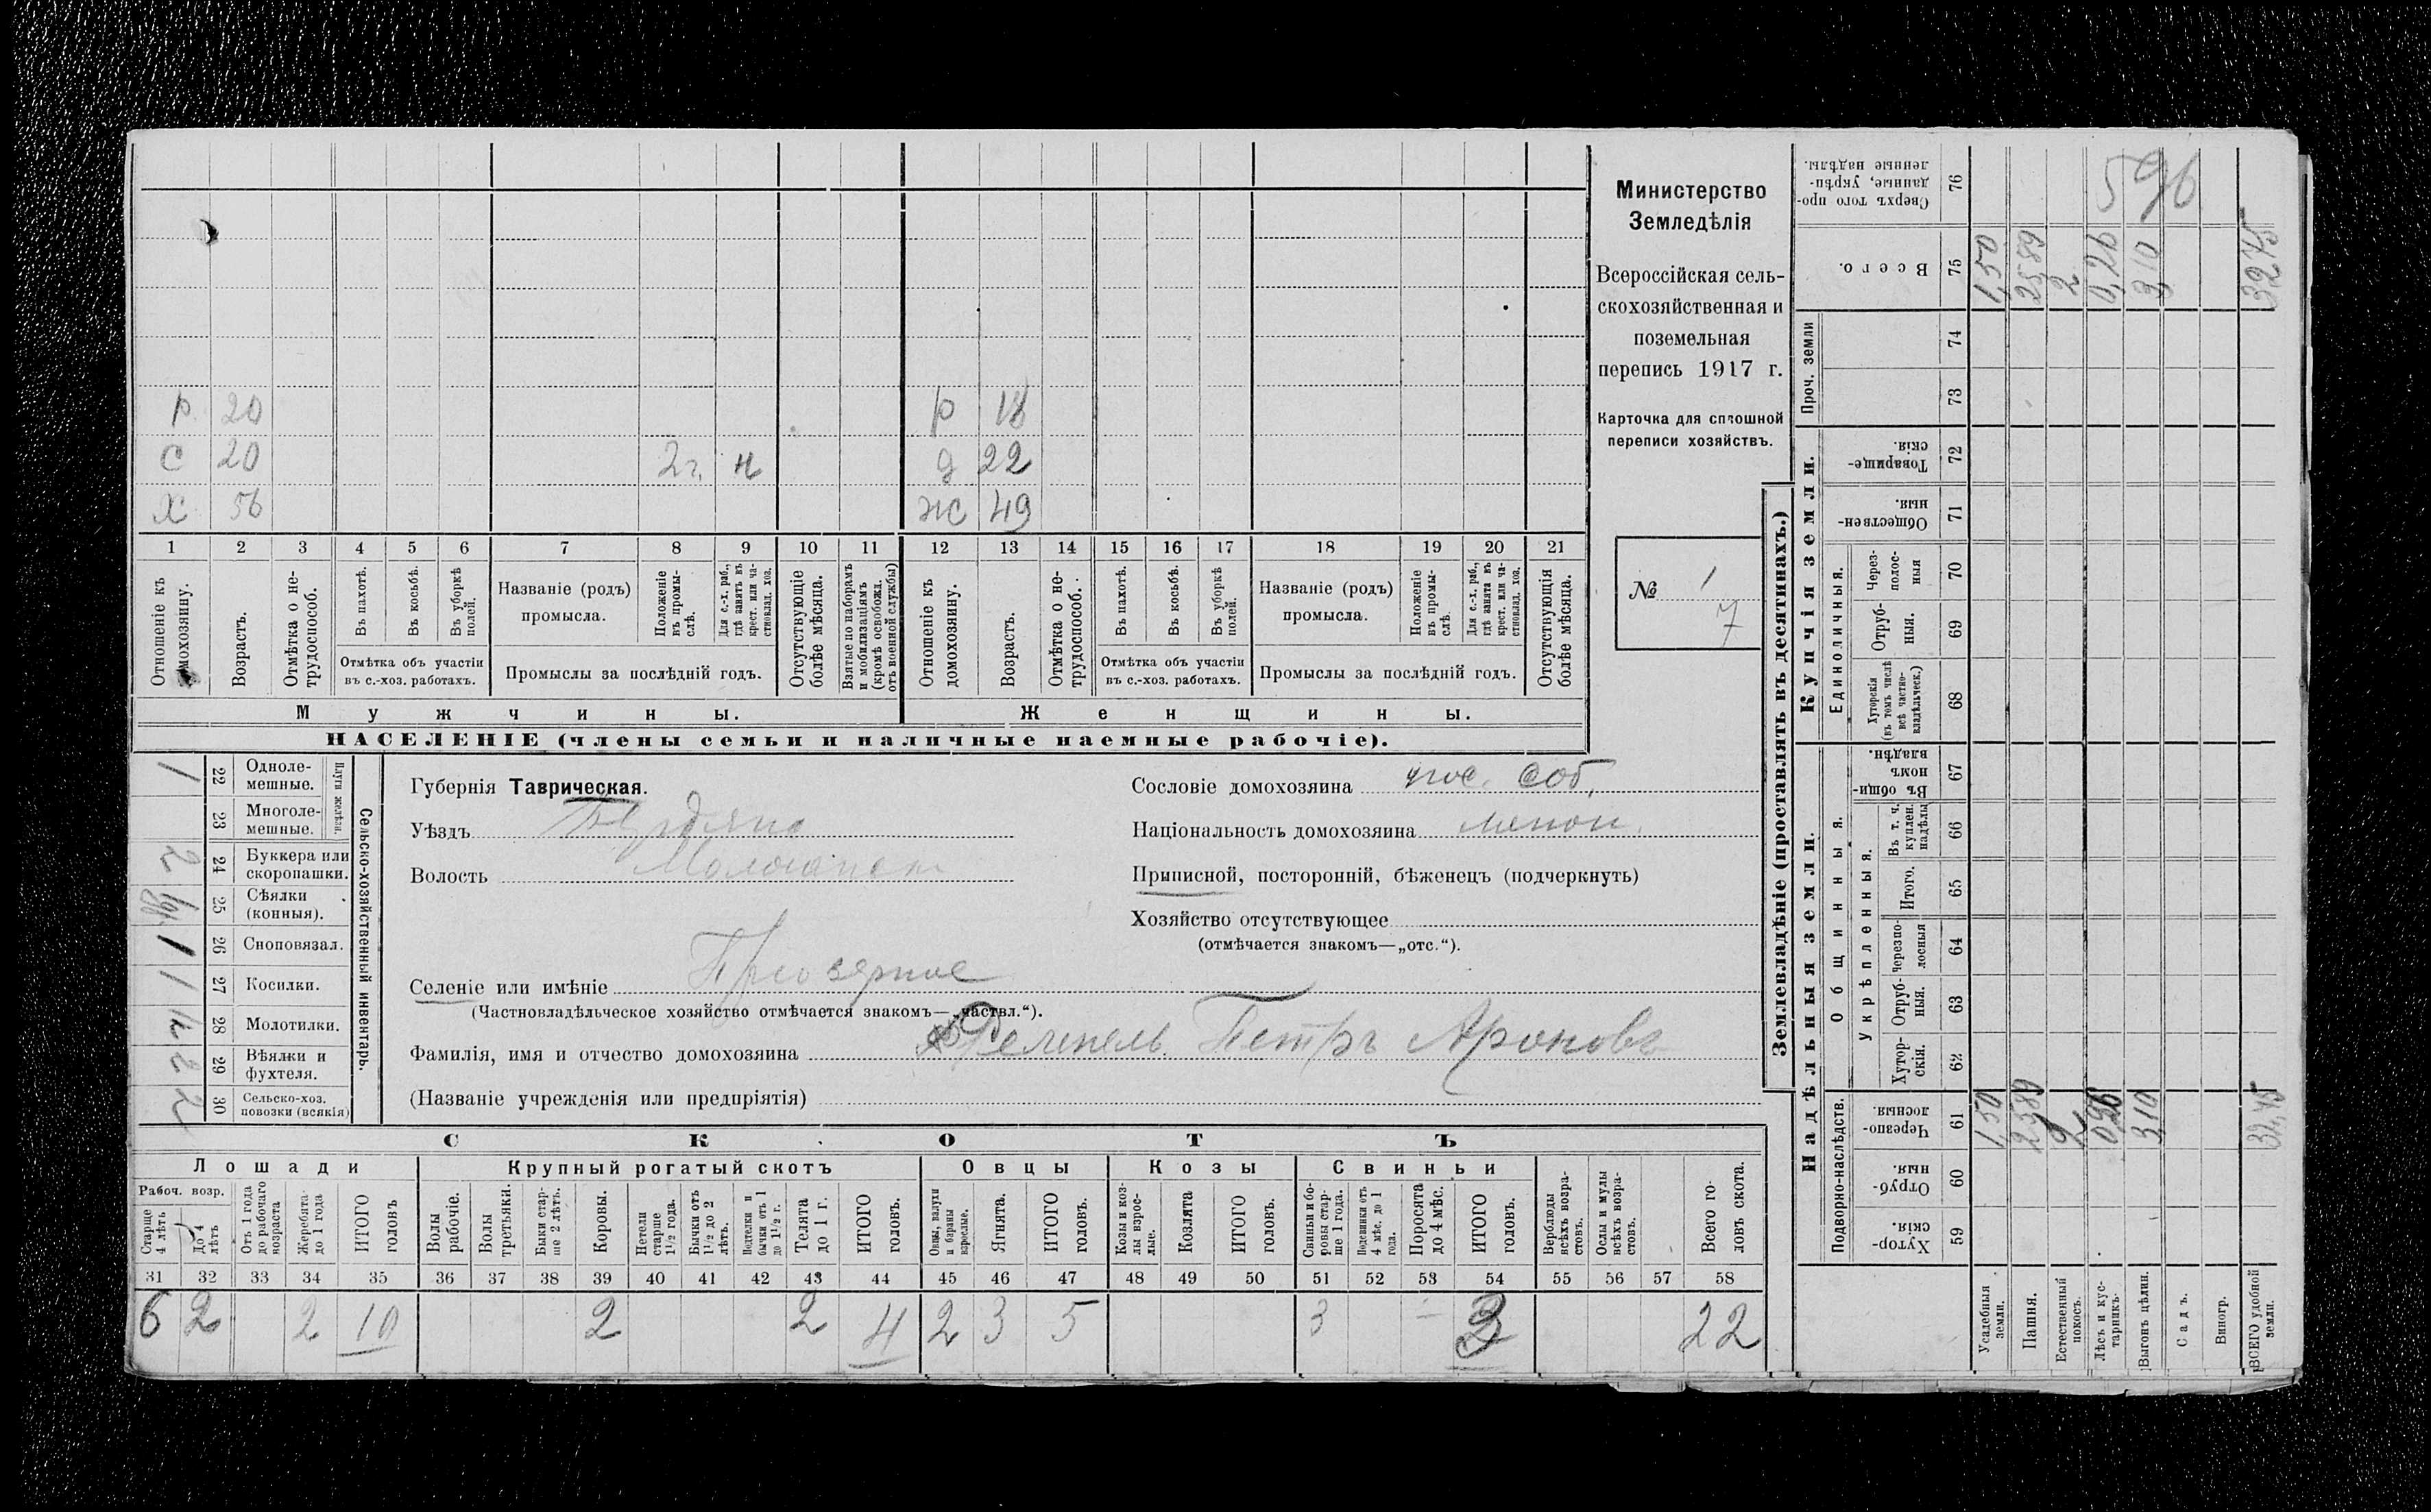 Министерство
Земледѣлія
Всероссійская сель-
скохозяйственная и
поземельная
перепись 1917 г.
Карточка для сплошной
переписи хозяйствъ.
№ 1
7
р 20 р 18
с 20 2 г. н д 22
х 56 ж 49
1 2 3 4 5 6 7 8 9 10 11 12 13 14 15 16 17 18 19 20 21
Отношеніе къ домохозяину.
Возрастъ.
Отмѣтка о не-
трудоспособ.
Въ пахотѣ.
Въ косьбѣ.
Въ уборкѣ
полей.
Отмѣтка объ участіи
въ с.-хоз. работахъ.
Названіе (родъ)
промысла.
Положеніе
въ промы-
слѣ.
Для с.-х. раб.,
гдѣ занятъ въ
крест. или ча-
стновлад. хоз.
Промыслы за послѣдній годъ.
Отсутствующіе
болѣе мѣсяца.
Взятые по наборамъ
и мобилизаціямъ
(кромѣ освобожд.
отъ военной службы)
Отношеніе къ
домохозяину.
Возрастъ.
Отмѣтка о не-
трудоспособ.
Въ пахотѣ.
Въ косьбѣ.
Въ уборкѣ
полей.
Отмѣтка объ участіи
въ с.-хоз. работахъ.
Названіе (родъ)
промысла.
Положеніе
въ промы-
слѣ.
Для с.-х. раб.,
гдѣ занята въ
крест. или ча-
стновлад. хоз.
Промыслы за послѣдній годъ.
Отсутствующія
болѣе мѣсяца.
Мужчины. Женщины.
НАСЕЛЕНІЕ (члены семьи и наличные наемные рабочіе).
Сельско-хозяйственный инвентарь.
Плуги желѣзн.
Одноле-
мешные. 22 1
Многоле-
мешные. 23
Буккера или
скоропашки. 24 2
Сѣялки
(конныя). 25
Сноповязал. 26 1
Косилки. 27 1
Молотилки. 28
Вѣялки и
фухтеля. 29 2
Сельско-хоз.
повозки (всякія) 30 2
Губернія Таврическая.
Уѣздъ Бердянс
Волость Молочанск
Сословіе домохозяина пос. соб.
Національность домохозяина менон.
Приписной, посторонній, бѣженецъ (подчеркнуть)
Хозяйство отсутствующее
(отмѣчается знакомъ—„отс.“).
Селеніе или имѣніе Приозерное
(Частновладѣльческое хозяйство отмѣчается знакомъ—„частвл.“).
Фамилія, имя и отчество домохозяина Ремпель Петръ Ароновъ
(Названіе учрежденія или предпріятія)
СКОТЪ
Лошади Крупный рогатый скотъ Овцы Козы Свиньи
Рабоч. возр.
Старше
4 лѣтъ
До 4
лѣтъ
Отъ 1 года
до рабочаго
возраста
Жеребята
до 1 года
ИТОГО
головъ
Волы
рабочіе.
Волы
третьяки.
Быки стар-
ше 2 лѣтъ.
Коровы.
Нетели
старше
1½ года.
Бычки отъ
1½ до 2
лѣтъ.
Подтелки и
бычки отъ 1
до 1½ г.
Телята
до 1 г.
ИТОГО
головъ.
Овцы, валухи
и бараны
взрослые.
Ягнята.
ИТОГО
головъ.
Козы и коз-
лы взрос-
лые.
Козлята
ИТОГО
головъ.
Свиньи и бо-
ровы стар-
ше 1 года.
Подсвинки отъ
4 мѣс. до 1
года.
Поросята
до 4 мѣс.
ИТОГО
головъ.
Верблюды
всѣхъ возра-
стовъ.
Ослы и мулы
всѣхъ возра-
стовъ.
Всего го-
ловъ скота.
31 32 33 34 35 36 37 38 39 40 41 42 43 44 45 46 47 48 49 50 51 52 53 54 55 56 57 58
6 2 2 10 2 2 4 2 3 5 3 – 3 22
Землевладѣніе (проставлять въ десятинахъ.)
Надѣльныя земли. Купчія земли.
Проч. земли
Подворно-наслѣдств.
Общинныя.
Укрѣпленныя.
Единоличныя.
Хутор-
скія. 59
Отруб-
ныя. 60
Черезпо-
лосныя. 61
Хутор-
скія. 62
Отруб-
ныя. 63
Черезпо-
лосныя 64
Итого. 65
Въ т. ч.
куплен.
надѣлы 66
Въ общи-
номъ
владѣн. 67
Хуторскія
(въ томъ числѣ
всѣ частно-
владѣльческ.) 68
Отруб-
ныя. 69
Через-
полос-
ныя 70
Обществен-
ныя. 71
Товарище-
скія. 72
73
74
Всего. 75
Сверхъ того про-
данные, укрѣп-
ленные надѣлы. 76
596
Усадебныя
земли. 1,50 1,50
Пашня. 25,89 25,89
Естественный
покосъ. 2 2
Лѣсъ и кус-
тарникъ. 0,26 0,26
Выгонъ цѣлин. 3,10 3,10
Садъ.
Виногр.
ВСЕГО удобной
земли. 32,75 32,75